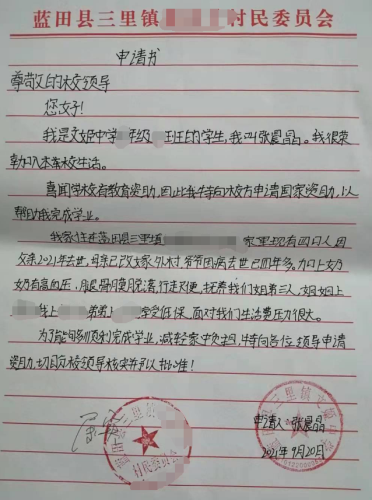 蓝田县三里镇 村民委员会
申请书
尊敬的校领导
您好!
我是文姬中学 年级 班的学生,我叫张晨晶。我很荣
幸加入本集校生活。
喜闻学校有教育资助,因此我特向校方申请国家资助,以
帮助我完成学业。
我家住在蓝田县三里镇 家里现有四口人因
父亲2021年去世,母亲已改嫁外村,爷爷因病去世已四年多。加上奶
奶有高血压,腿 行走不便,抚养我们姐弟三人,姐姐上
上 弟弟上 学受低保,面对我们生活费压力很大。
为了能够顺利完成学业,减轻家中负担,特向各位领导申请
资助,切盼校领导核实并予以批准!
申请人:张晨晶
2021年9月20日
蓝田县三里
村民委员会